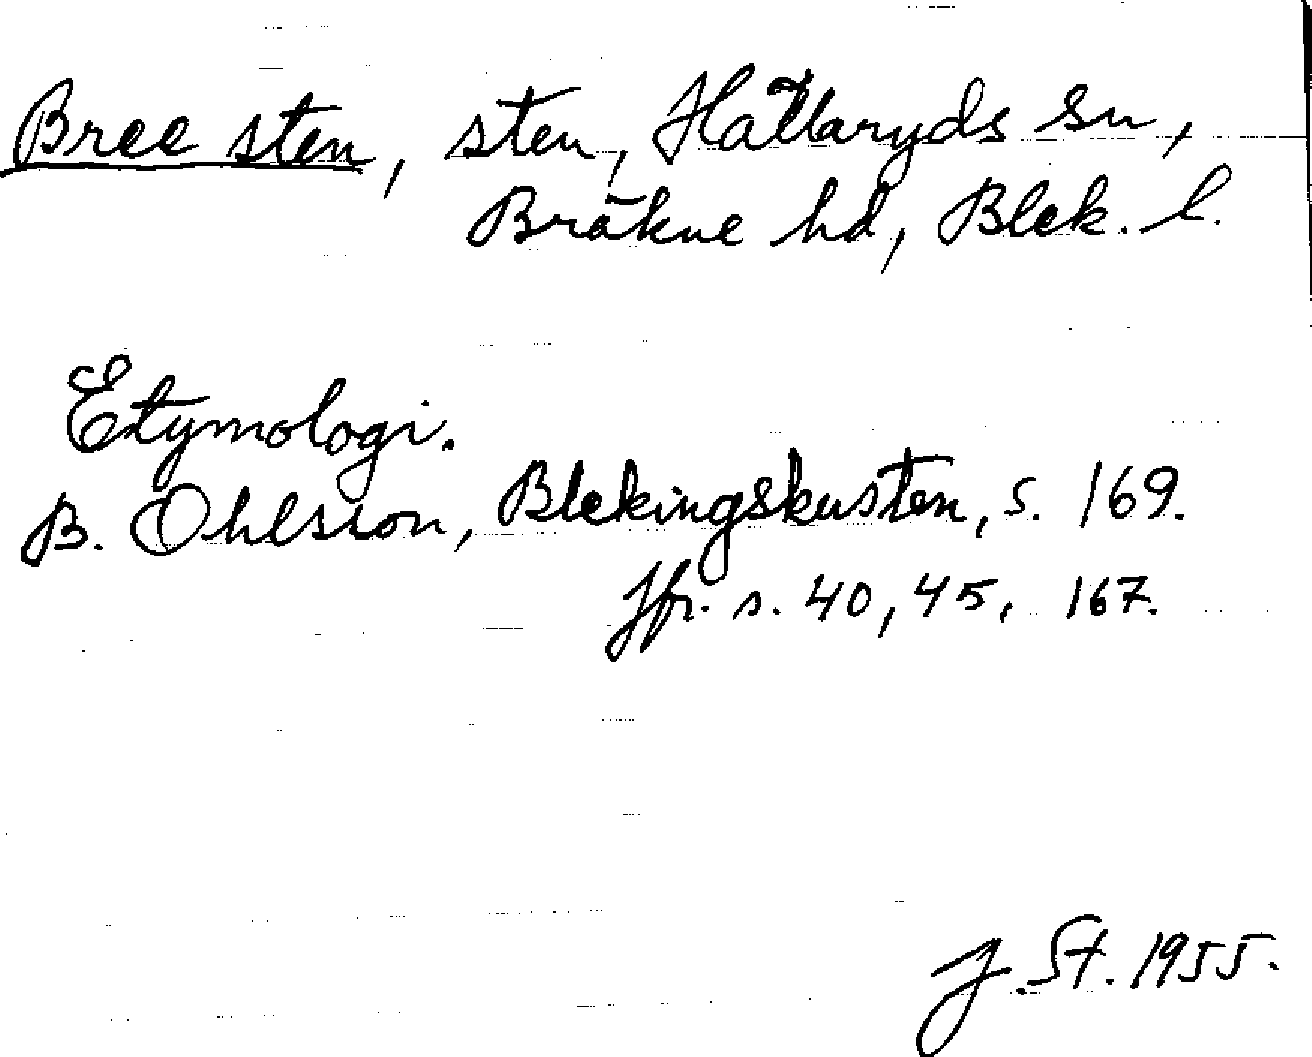 Bree sten, sten, Hällaryds sn,
Bräkne hd, Blek. l.
Etymologi.
B. Ohlsson, Blekingskusten, s. 169.
Jfr. s. 40, 45, 167.
J. St. 1955.